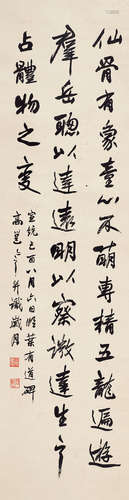 仙骨有象壹心不萌專精五龍遍遊
羣岳聰以達遠明以察微達生之
占體物之變
宣統己酉八月六日臨葉有道碑
高邕之并識歲月